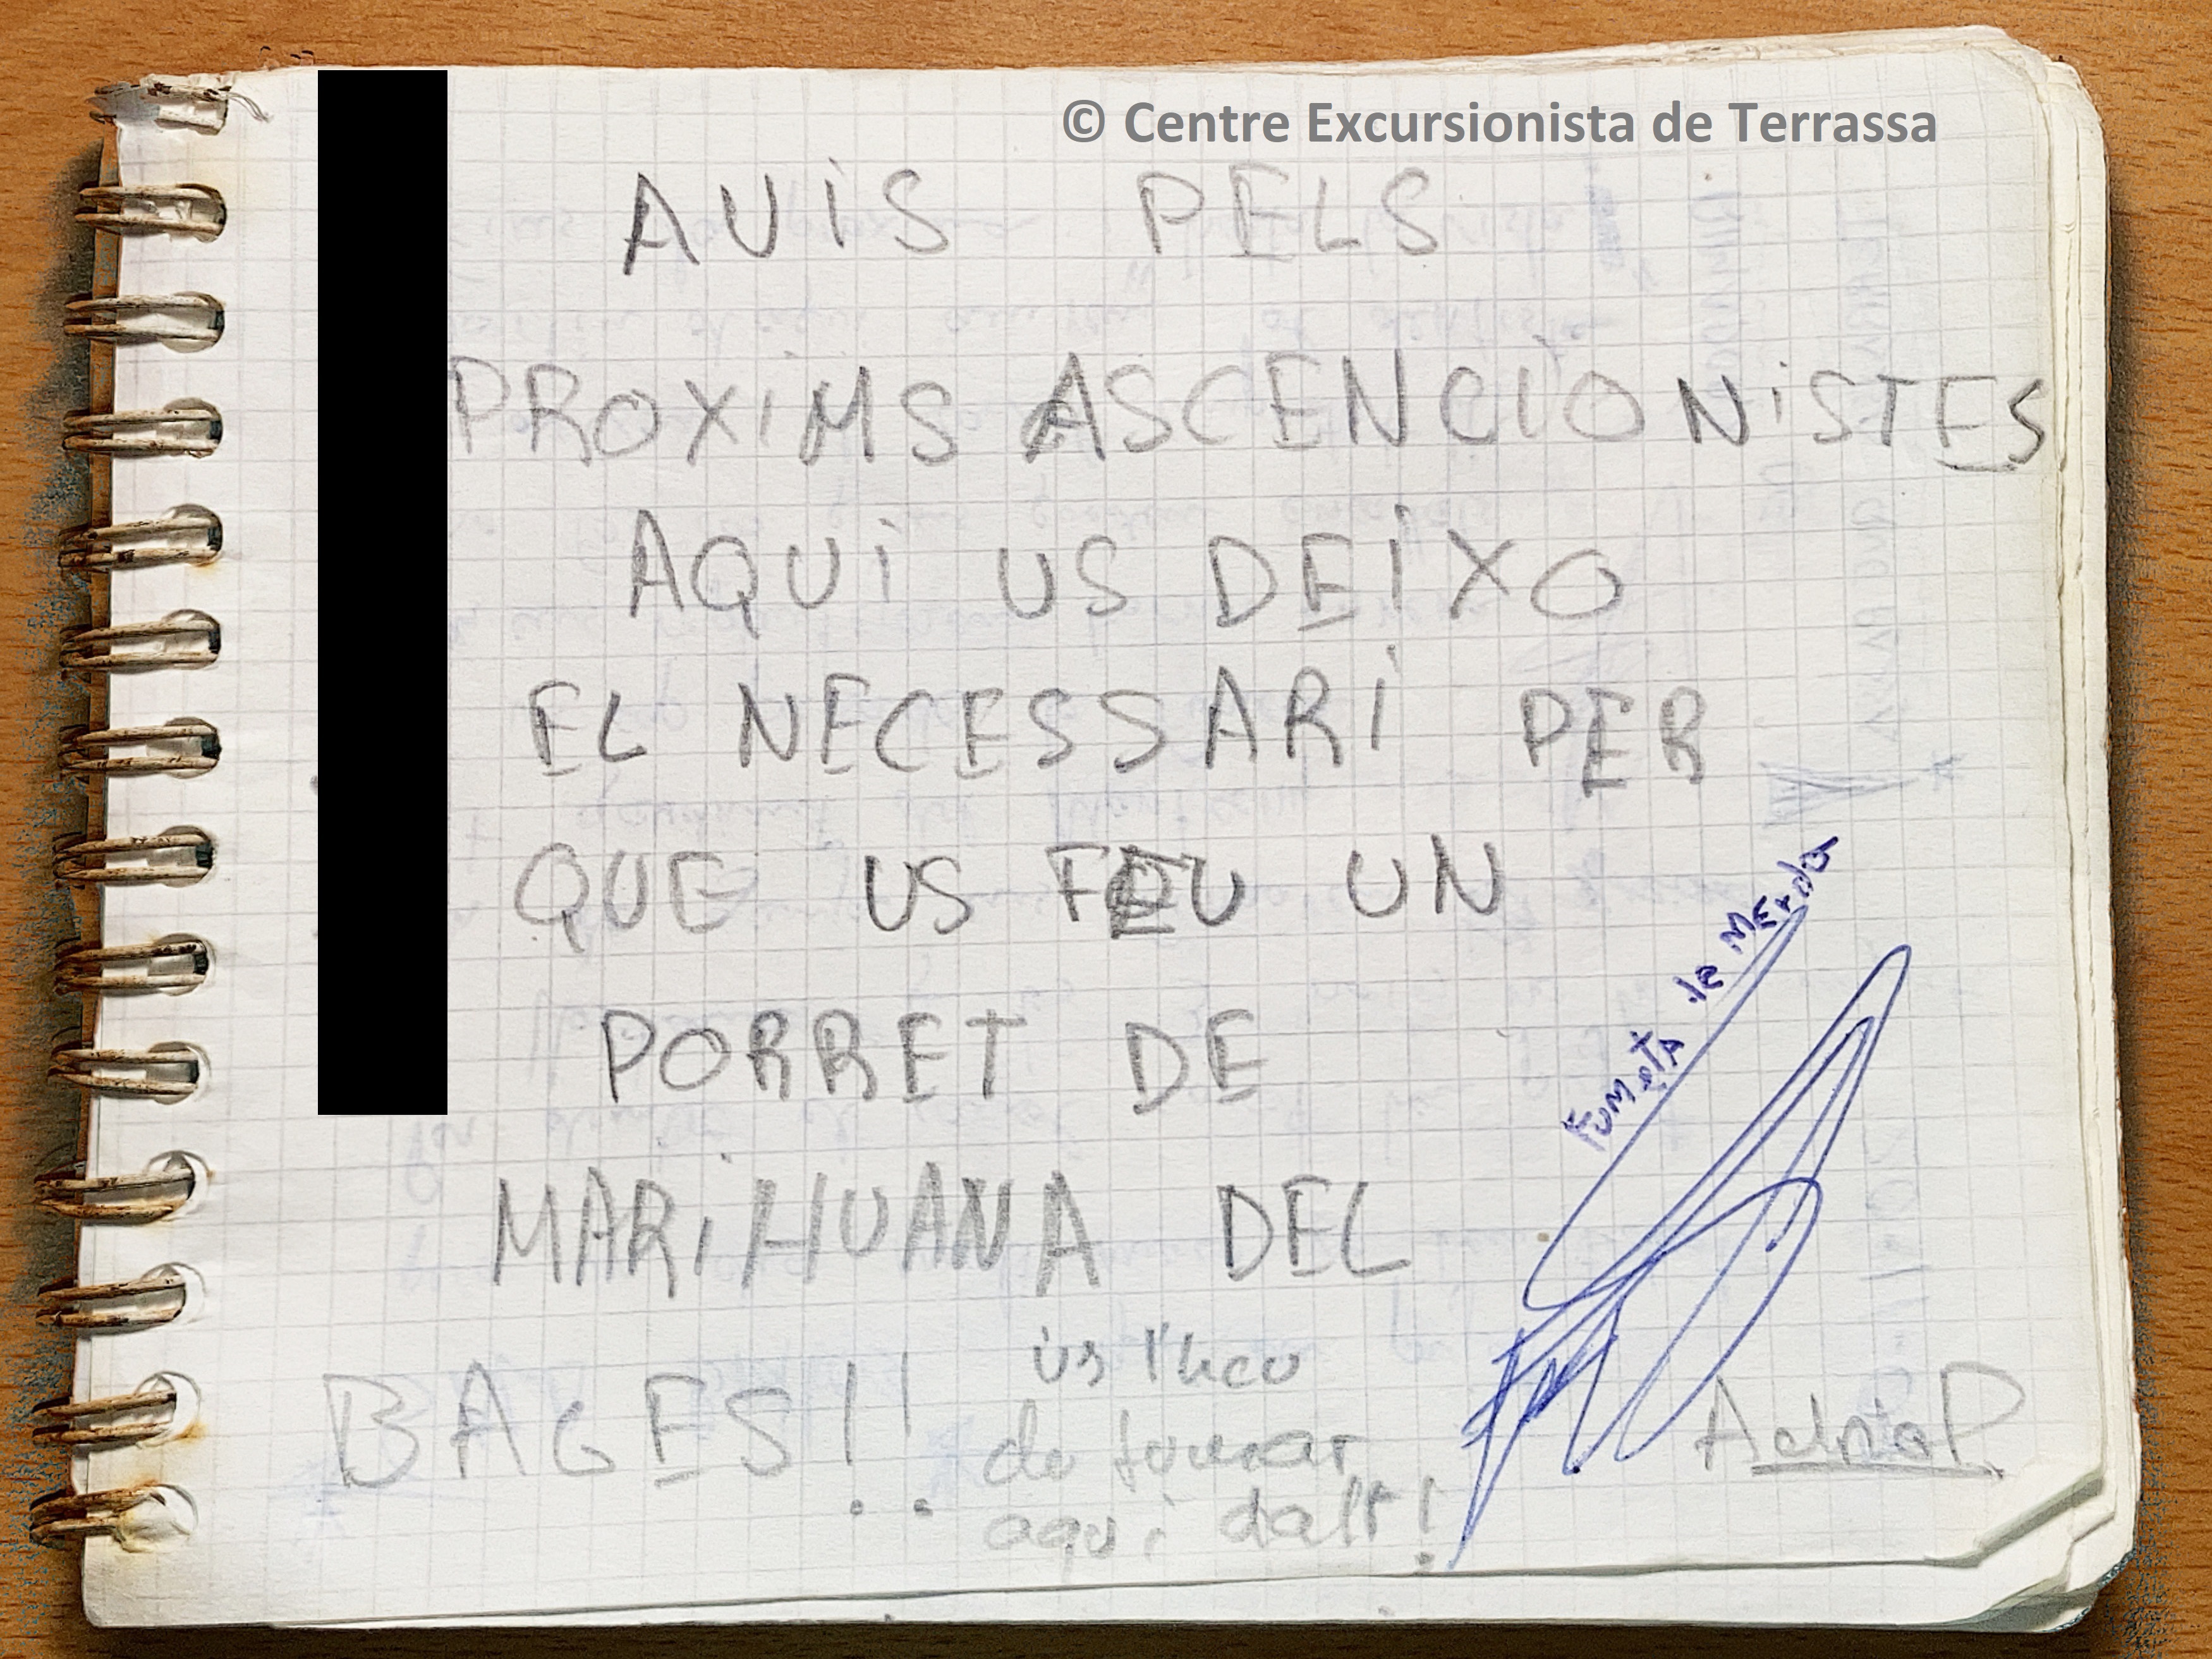 © Centre Excursionista de Terrassa
AVIS PELS
PROXIMS ASCENCIONISTES
AQUI US DEIXO
EL NECESSARI PER
QUE US FEU UN
PORRET DE
MARIHUANA DEL
BAGES!!
us l'heu
de fumar
aqui dalt!
FUMETA de MERdA
AdriaP